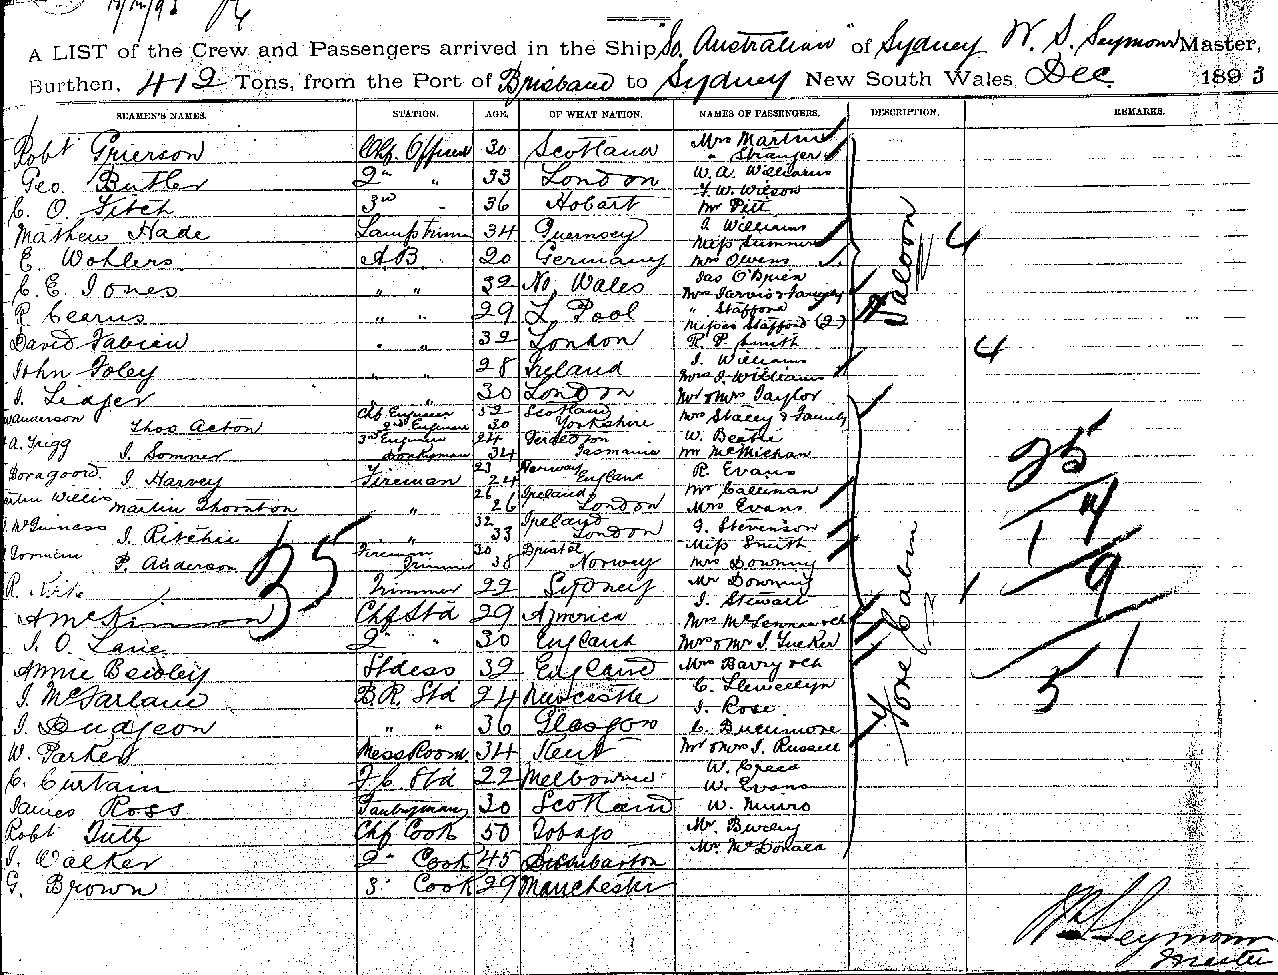 A LIST of the Crew and Passengers arrived in the Ship "So. Australian" of Sydney W. S. Seymour Master,
Burthen, 412 Tons, from the Port of Brisbane to Sydney New South Wales Dec 1893
SEAMEN'S NAMES. STATION. AGE. OF WHAT NATION. NAMES OF PASSENGERS. DESCRIPTION. REMARKS.
Robt Grierson Chf. Officer 30 Scotland Mrs Martin
" Stranger
Geo. Butler 2" " 33 London W. A. Williams
F. W. Wilson
C. O. Fitch 3rd - 36 Hobart Mr Pitt
Mathew Hade Lamptrim 34 Guernsey A Williams
Miss Sumner
E. Wohlers AB 20 Germany Mrs Owens
C. E. Jones " " 32 No. Wales Jas O'Brien
Mrs Jarvis & Family
R Cearns " " 29 L. Pool " Stafford
Misses Stafford (2)
David Fabien " " 32 London R. P. Smith
John Foley " " 28 Ireland J. Williams
Mrs J. Williams
J. Ledger " " 30 London Mr & Mrs Taylor
Saloon 4
4
Anderson Chf Engineer 52 Scotland Mrs Stacey & Family
Thos Acton 2nd Engineer 30 Yorkshire
A. Grigg 3rd Engineer 24 W. Beattie
J. Somner Donkeyman 34 Tasmania Mr McMichan
J. Harvey Fireman 23 Norway R. Evans
24 England
Willis 26 Ireland Mr Calliman
Martin Thornton " 26 London Mrs Evans
McGuiness 32 Ireland J. Stevenson
J. Ritchie " 33 London Miss Smith
Fireman 30 Bristol Mrs Downing
P. Anderson Trimmer 38 Norway Mr Downing
R. Kirk Trimmer 22 Sydney J. Stewart
35
A McKinnon Chf Std 29 America Mrs McLennan & ch
J. O. Lane 2" " 30 England Mrs & Mr J. Tucker
Annie Beidley Stdess 32 England Mrs Barry & ch
J. McFarlane B. R. Std 24 Newcastle C. Llewellyn
J. Rose
J. Dudgeon " " 36 Glasgow C. Buttimore
W. Parker Mess Room 34 Kent Mr & Mrs J. Russell
C. Curtain F. C. Std 22 Melbourne W. Creed
W. Evans
James Ross Pantryman 30 Scotland W. Munro
Robt Tutt Chf Cook 50 Tobago Mr. Burley
J. Walker 2" Cook 45 Dumbarton Mr. McDonald
G. Brown 3" Cook 29 Manchester
Fore Cabin
25
14
1 9
1
5
W. S. Seymour
Master